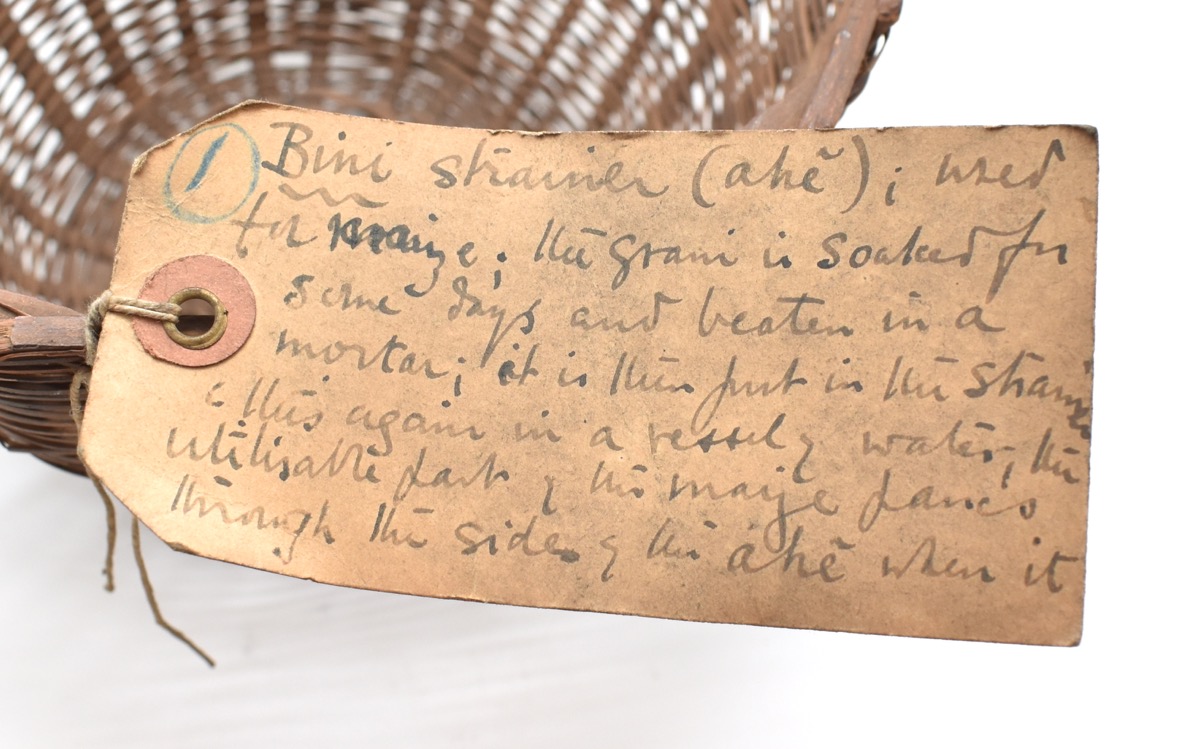 1 Bini strainer (ahẽ); used
for maize; the grain is soaked for
some days and beaten in a
mortar; it is then put in the strainer
& this again in a vessel of water; the
utilisable part of the maize passes
through the sides of the ahẽ when it